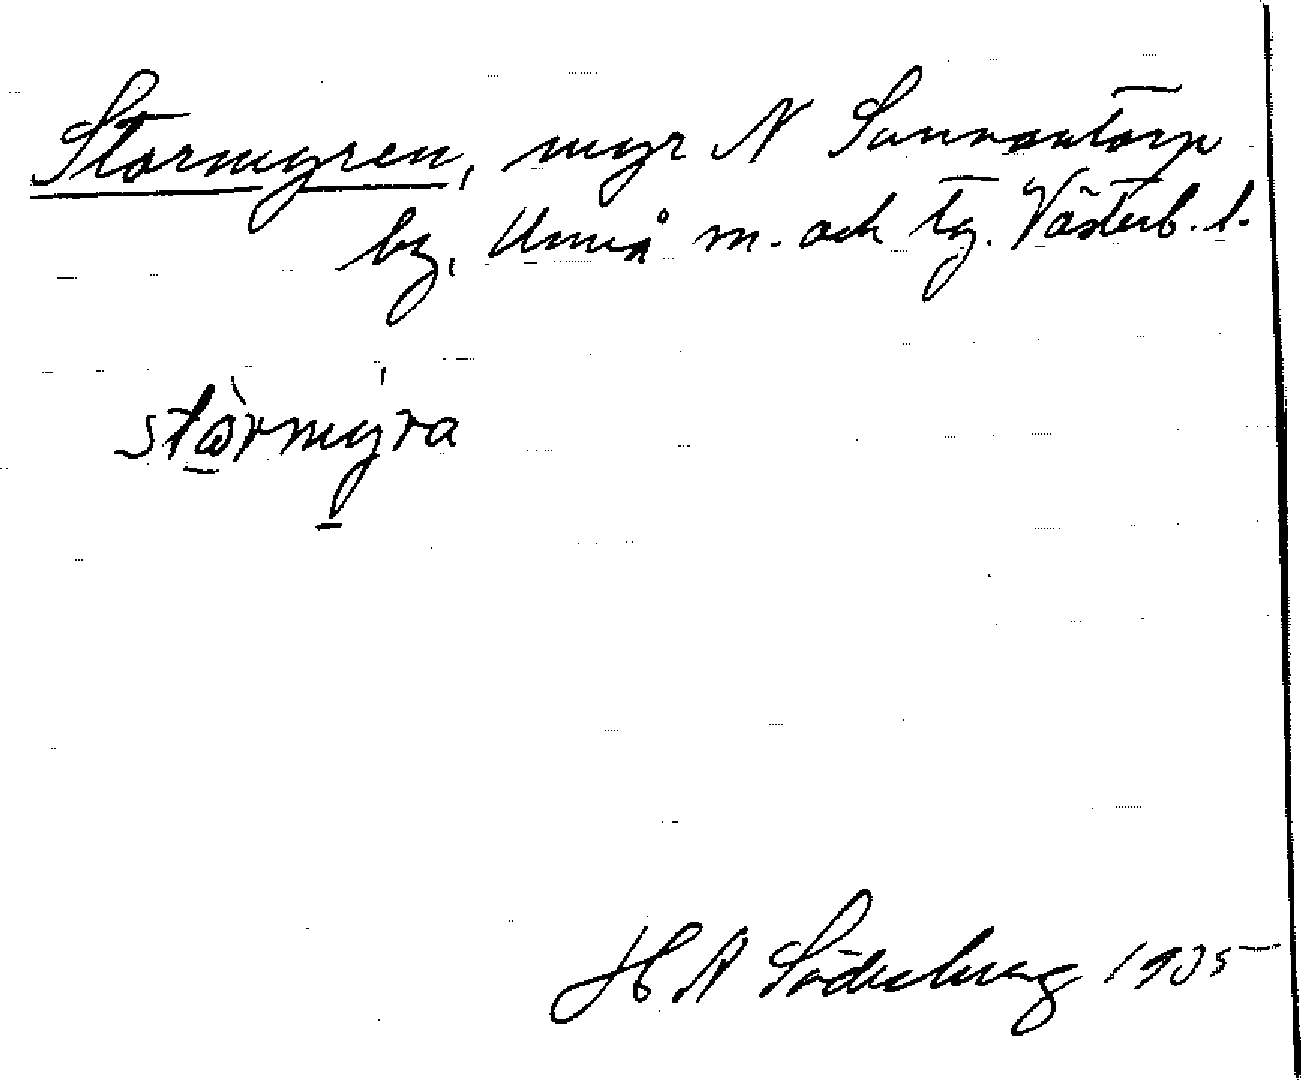 Stormyren, myr N Sunnantorp
by, Umeå m. och tg. Västerb. l.
stòrmyra
H A Söderberg 1905